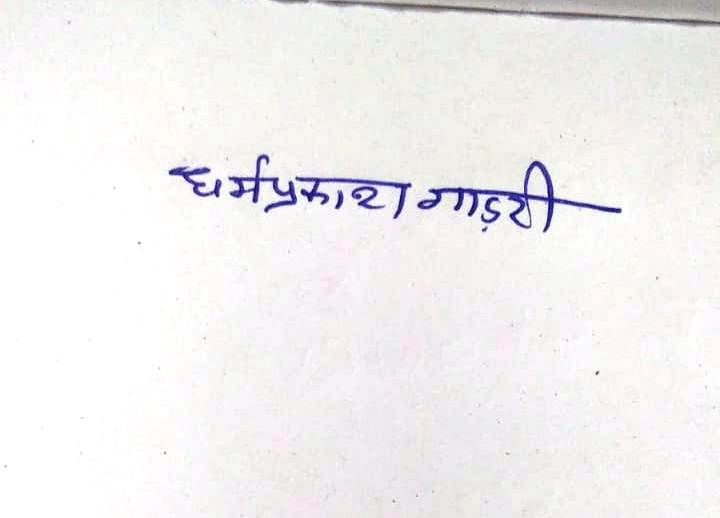 धर्मप्रकाश गाडरी